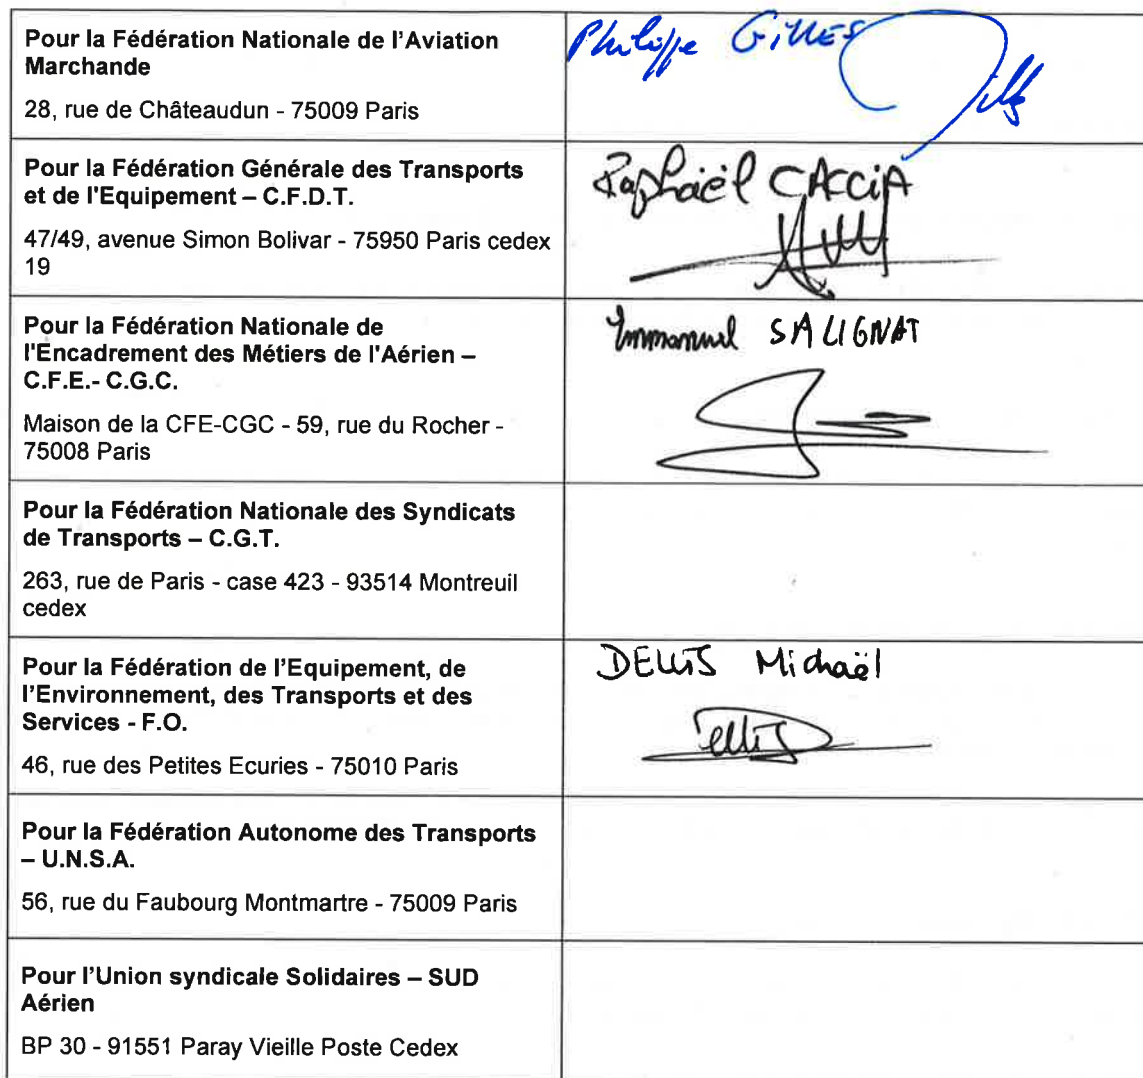 Pour la Fédération Nationale de l'Aviation
Marchande
28, rue de Châteaudun - 75009 Paris
Philippe GILLES
Pour la Fédération Générale des Transports
et de l'Equipement – C.F.D.T.
47/49, avenue Simon Bolivar - 75950 Paris cedex
19
Raphaël CACCIA
Pour la Fédération Nationale de
l'Encadrement des Métiers de l'Aérien –
C.F.E.- C.G.C.
Maison de la CFE-CGC - 59, rue du Rocher -
75008 Paris
Emmanuel SALIGNAT
Pour la Fédération Nationale des Syndicats
de Transports – C.G.T.
263, rue de Paris - case 423 - 93514 Montreuil
cedex
Pour la Fédération de l'Equipement, de
l'Environnement, des Transports et des
Services - F.O.
46, rue des Petites Ecuries - 75010 Paris
DELLIS Michaël
Pour la Fédération Autonome des Transports
– U.N.S.A.
56, rue du Faubourg Montmartre - 75009 Paris
Pour l'Union syndicale Solidaires – SUD
Aérien
BP 30 - 91551 Paray Vieille Poste Cedex